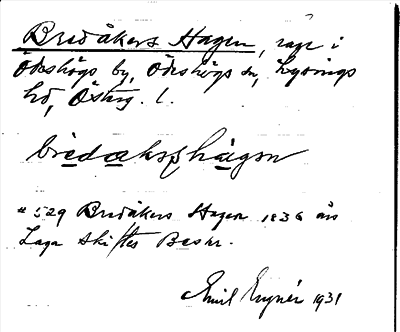 Bredåkers Hagen, äga i
Ödeshögs by, Ödeshögs sn, Lysings
hd, Österg. l.
bredakershagen
529 Bredåkers Hagen 1836 års
Laga Skiftes Beskr.
Emil 1931